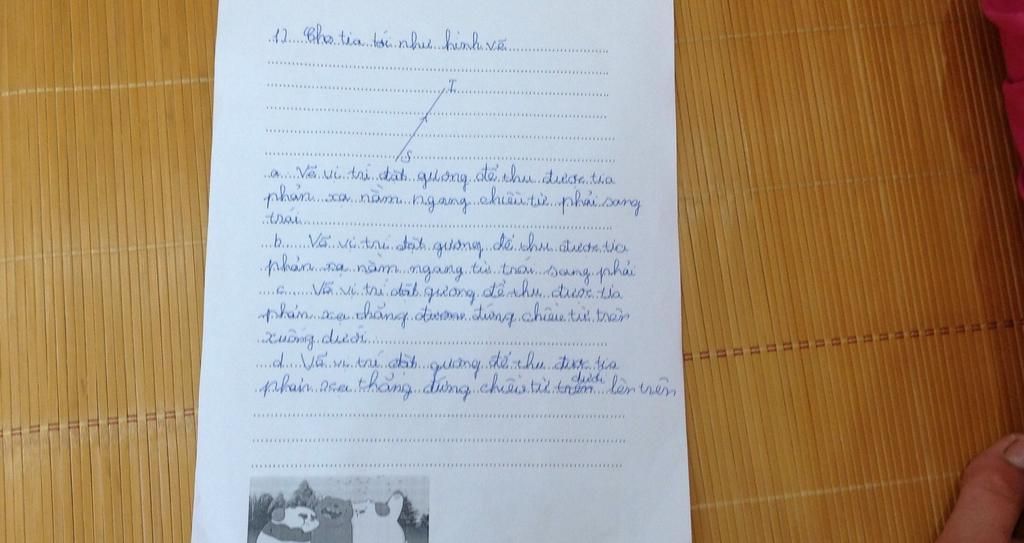 1) Cho tia tới như hình vẽ
I
S
a. Vẽ vị trí đặt gương để thu được tia
phản xạ nằm ngang chiều từ phải sang
trái
b. Vẽ vị trí đặt gương để thu được tia
phản xạ nằm ngang từ trái sang phải
c. Vẽ vị trí đặt gương để thu được tia
phản xạ thẳng đứng chiều từ trên
xuống dưới
d. Vẽ vị trí đặt gương để thu được tia
phản xạ thẳng đứng chiều từ dưới lên trên